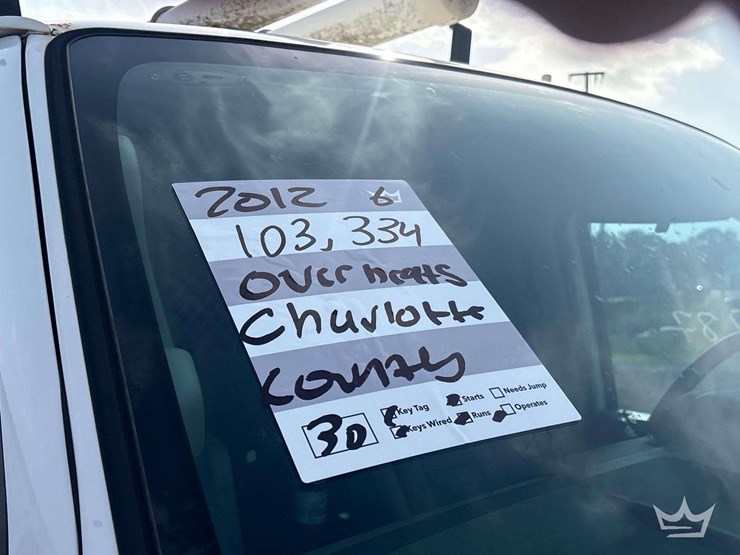 2012 6
103,334
over heats
Charlotte
County
30
Key Tag Starts Needs Jump
Keys Wired Runs Operates